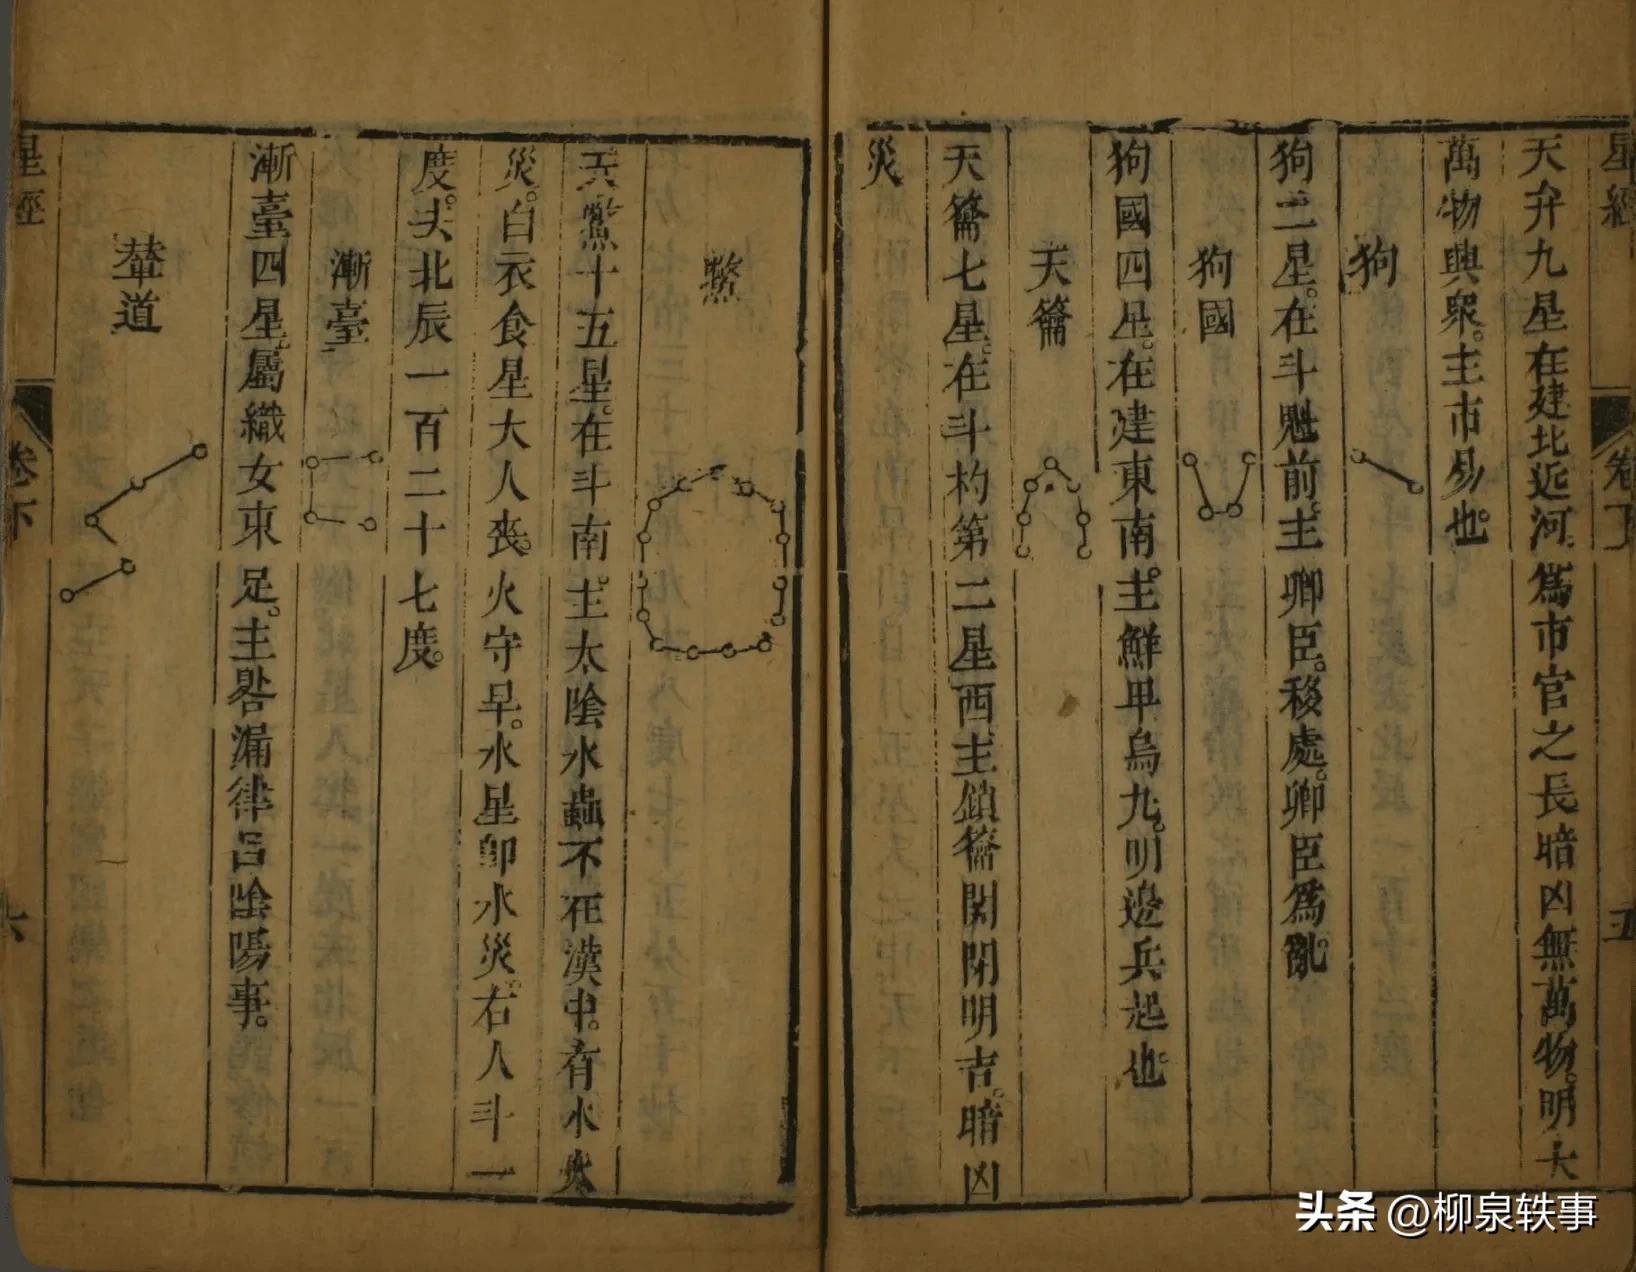 星經
卷下
五
天弁九星在建北近河。為市官之長暗凶無萬物。明大
萬物興衆。主市易也。
狗
狗二星。在斗魁前。主卿臣。移處。卿臣為亂。
狗國
狗國四星。在建東南。主鮮甲烏九。明邊兵起也。
天籥
天籥七星。在斗杓第二星西主鎖籥關閉明吉。暗凶
災
鱉
天鱉十五星。在斗南。主太陰水蟲不在漢中。有水火
災。白衣食星大人喪。火守旱。水星即水災。右入斗一
度。去北辰一百二十七度。
漸臺
漸臺四星。屬織女東足。主晷漏律呂陰陽事。
輦道
星經
卷下
六
头条 @柳泉轶事